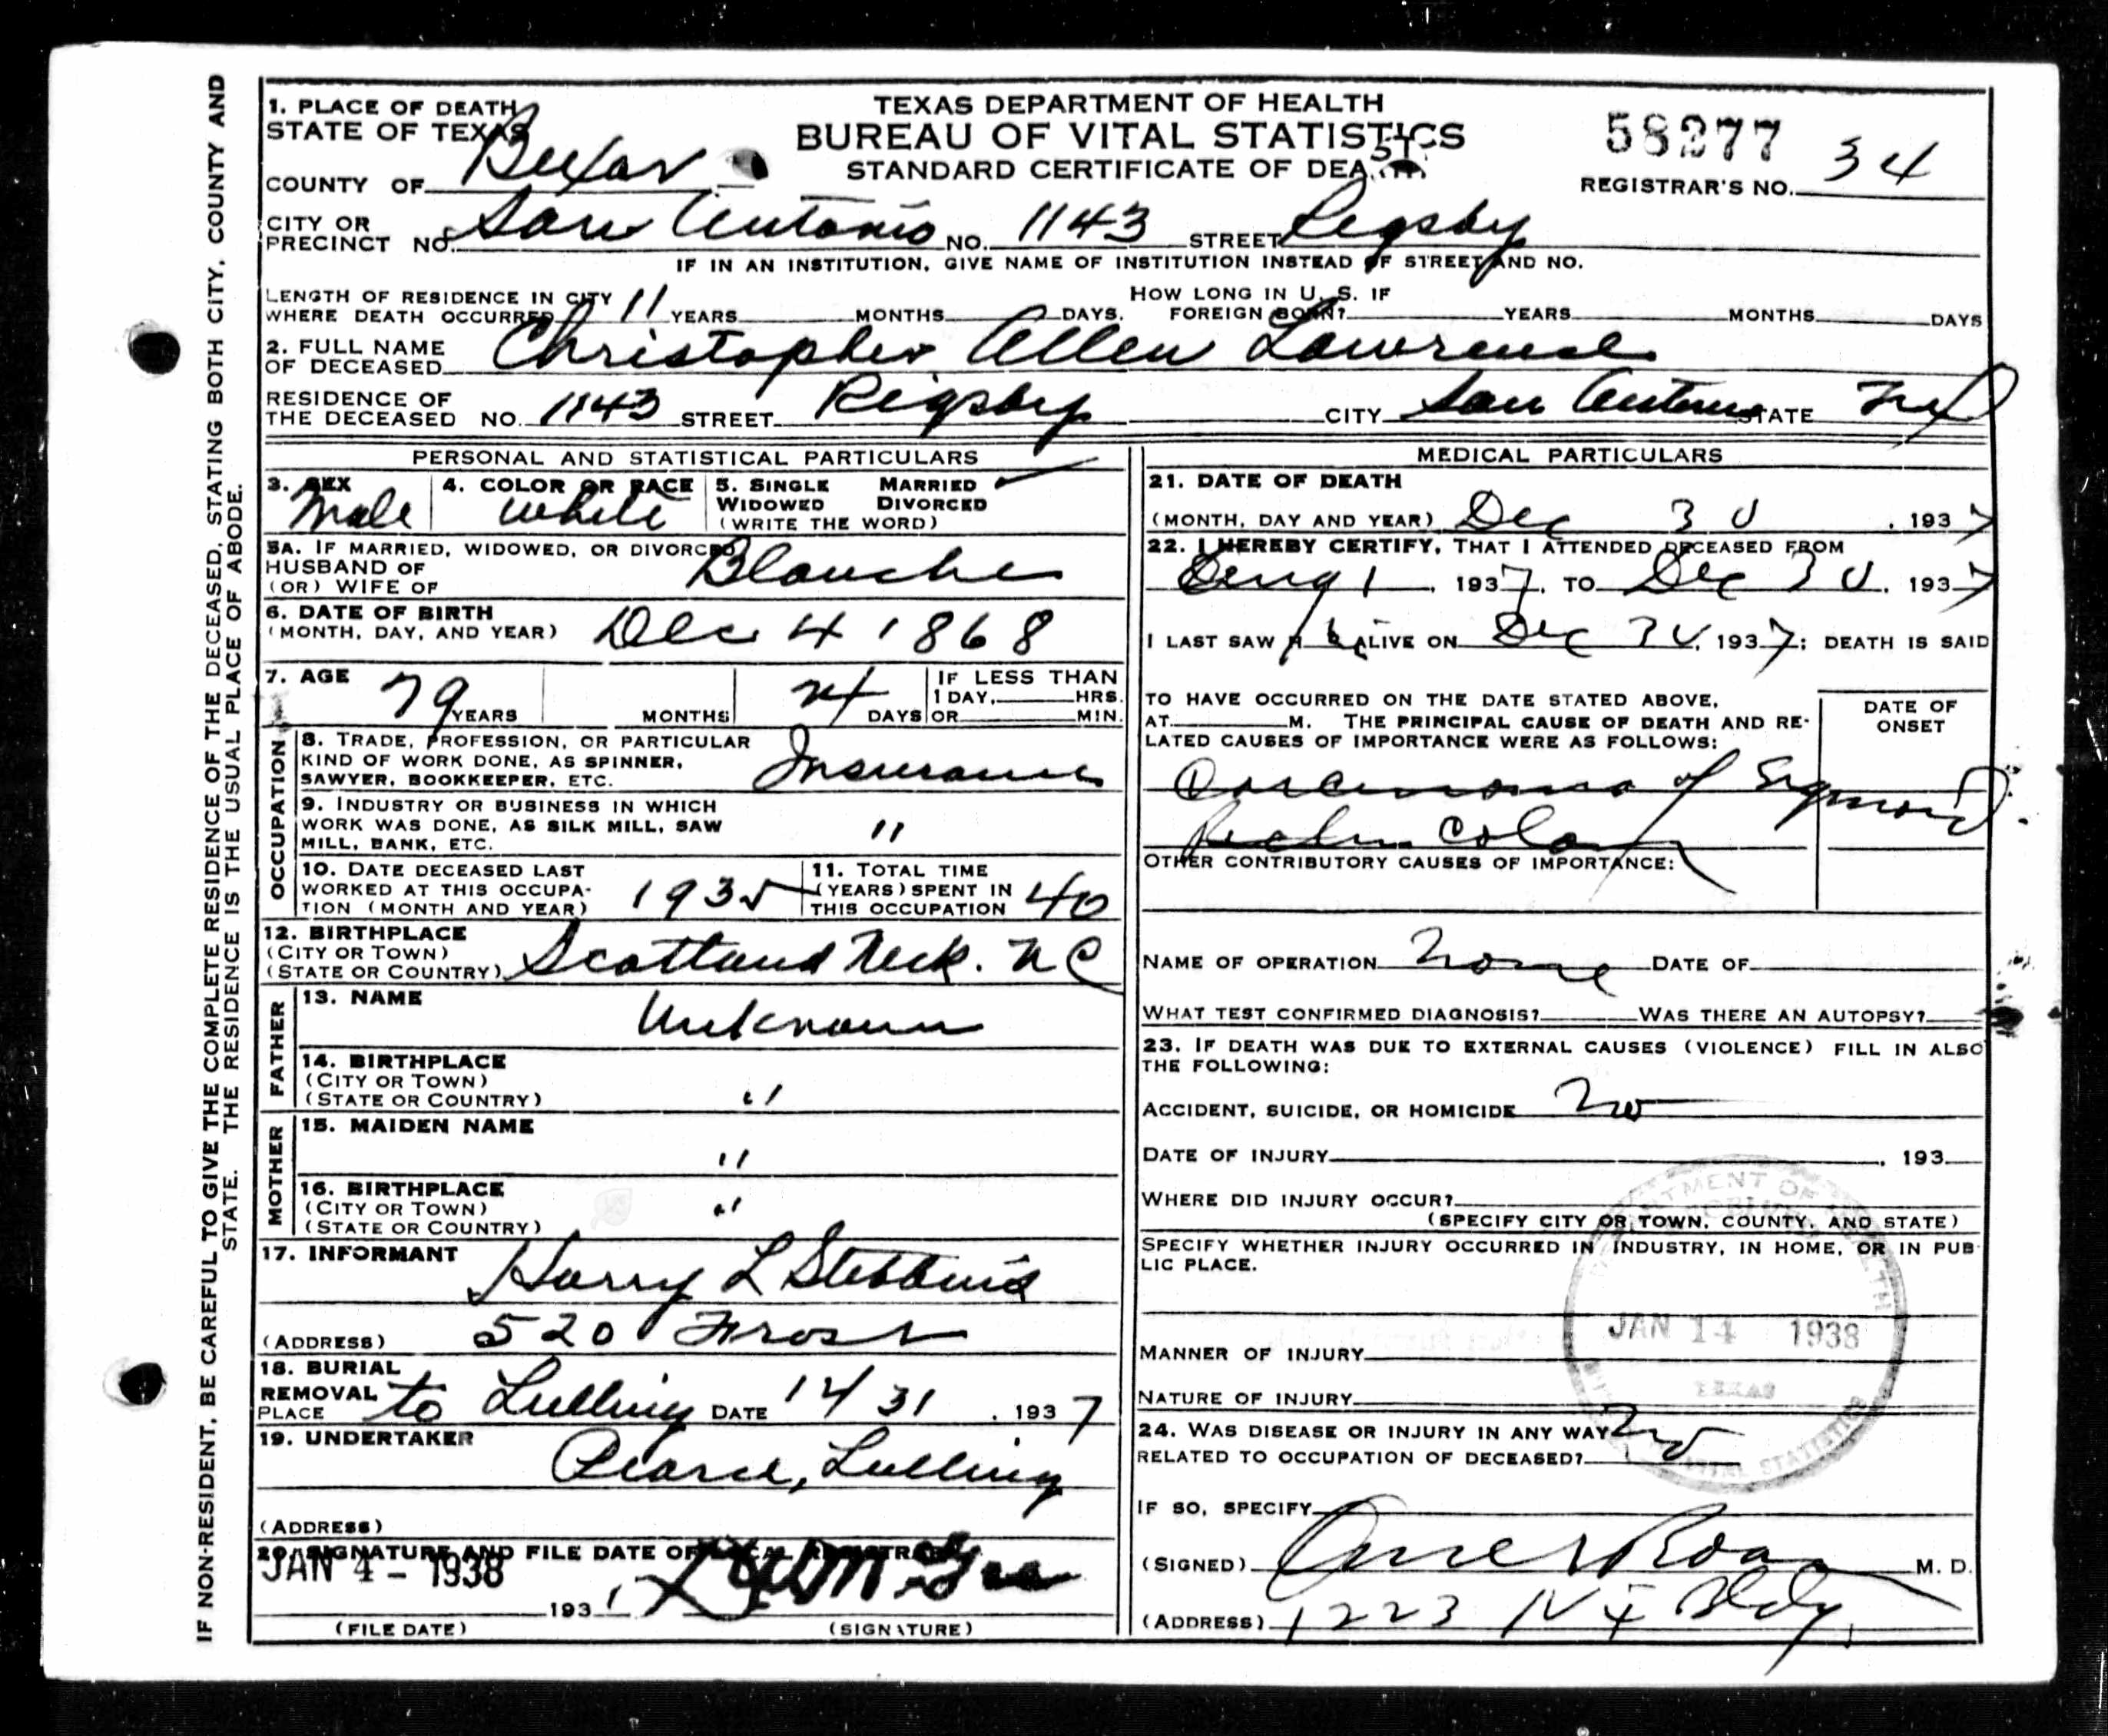 IF NON-RESIDENT, BE CAREFUL TO GIVE THE COMPLETE RESIDENCE OF THE DECEASED, STATING BOTH CITY, COUNTY AND
STATE. THE RESIDENCE IS THE USUAL PLACE OF ABODE.
1. PLACE OF DEATH
STATE OF TEXAS
COUNTY OF Bexar
TEXAS DEPARTMENT OF HEALTH
BUREAU OF VITAL STATISTICS
STANDARD CERTIFICATE OF DEATH
58277
REGISTRAR'S NO. 34
CITY OR
PRECINCT NO. San Antonio NO. 1143 STREET Rigsby
IF IN AN INSTITUTION, GIVE NAME OF INSTITUTION INSTEAD OF STREET AND NO.
LENGTH OF RESIDENCE IN CITY
WHERE DEATH OCCURRED 11 YEARS MONTHS DAYS.
HOW LONG IN U. S. IF
FOREIGN BORN? YEARS MONTHS DAYS
2. FULL NAME
OF DECEASED Christopher Allen Lawrence
RESIDENCE OF
THE DECEASED NO. 1143 STREET Rigsby CITY San Antonio STATE Tex
PERSONAL AND STATISTICAL PARTICULARS
3. SEX
Male
4. COLOR OR RACE
White
5. SINGLE MARRIED
WIDOWED DIVORCED
(WRITE THE WORD)
5A. IF MARRIED, WIDOWED, OR DIVORCED
HUSBAND OF
(OR) WIFE OF Blanche
6. DATE OF BIRTH
(MONTH, DAY, AND YEAR) Dec 4 1868
7. AGE
79 YEARS MONTHS DAYS
IF LESS THAN
1 DAY, HRS.
OR MIN.
OCCUPATION
8. TRADE, PROFESSION, OR PARTICULAR
KIND OF WORK DONE, AS SPINNER,
SAWYER, BOOKKEEPER, ETC. Insurance
9. INDUSTRY OR BUSINESS IN WHICH
WORK WAS DONE, AS SILK MILL, SAW
MILL, BANK, ETC. "
10. DATE DECEASED LAST
WORKED AT THIS OCCUPA-
TION (MONTH AND YEAR) 1935
11. TOTAL TIME
(YEARS) SPENT IN
THIS OCCUPATION 40
12. BIRTHPLACE
(CITY OR TOWN)
(STATE OR COUNTRY) Scotland Neck. N C
FATHER
13. NAME Unknown
14. BIRTHPLACE
(CITY OR TOWN)
(STATE OR COUNTRY) "
MOTHER
15. MAIDEN NAME "
16. BIRTHPLACE
(CITY OR TOWN)
(STATE OR COUNTRY) "
17. INFORMANT Harry L Stebbins
(ADDRESS) 520 Frost
18. BURIAL
REMOVAL
PLACE to Luling DATE 12/31, 1937
19. UNDERTAKER Pearce, Luling
(ADDRESS)
20. SIGNATURE AND FILE DATE OF LOCAL REGISTRAR
JAN 4 - 1938
193
(FILE DATE) (SIGNATURE)
MEDICAL PARTICULARS
21. DATE OF DEATH
(MONTH, DAY AND YEAR) Dec 30, 1937
22. I HEREBY CERTIFY, THAT I ATTENDED DECEASED FROM
1, 1937, TO Dec 30, 1937
I LAST SAW ALIVE ON Dec 30, 1937; DEATH IS SAID
TO HAVE OCCURRED ON THE DATE STATED ABOVE,
AT M. THE PRINCIPAL CAUSE OF DEATH AND RE-
LATED CAUSES OF IMPORTANCE WERE AS FOLLOWS:
DATE OF
ONSET
Carcinoma of Sigmoid
Colon
OTHER CONTRIBUTORY CAUSES OF IMPORTANCE:
NAME OF OPERATION None DATE OF
WHAT TEST CONFIRMED DIAGNOSIS? WAS THERE AN AUTOPSY?
23. IF DEATH WAS DUE TO EXTERNAL CAUSES (VIOLENCE) FILL IN ALSO
THE FOLLOWING:
ACCIDENT, SUICIDE, OR HOMICIDE No
DATE OF INJURY , 193
WHERE DID INJURY OCCUR?
(SPECIFY CITY OR TOWN, COUNTY, AND STATE)
SPECIFY WHETHER INJURY OCCURRED IN INDUSTRY, IN HOME, OR IN PUB-
LIC PLACE.
JAN 14 1938
TEXAS
MANNER OF INJURY
NATURE OF INJURY
24. WAS DISEASE OR INJURY IN ANY WAY
RELATED TO OCCUPATION OF DECEASED? No
IF SO, SPECIFY
(SIGNED) M. D.
(ADDRESS) 1223 Bldg